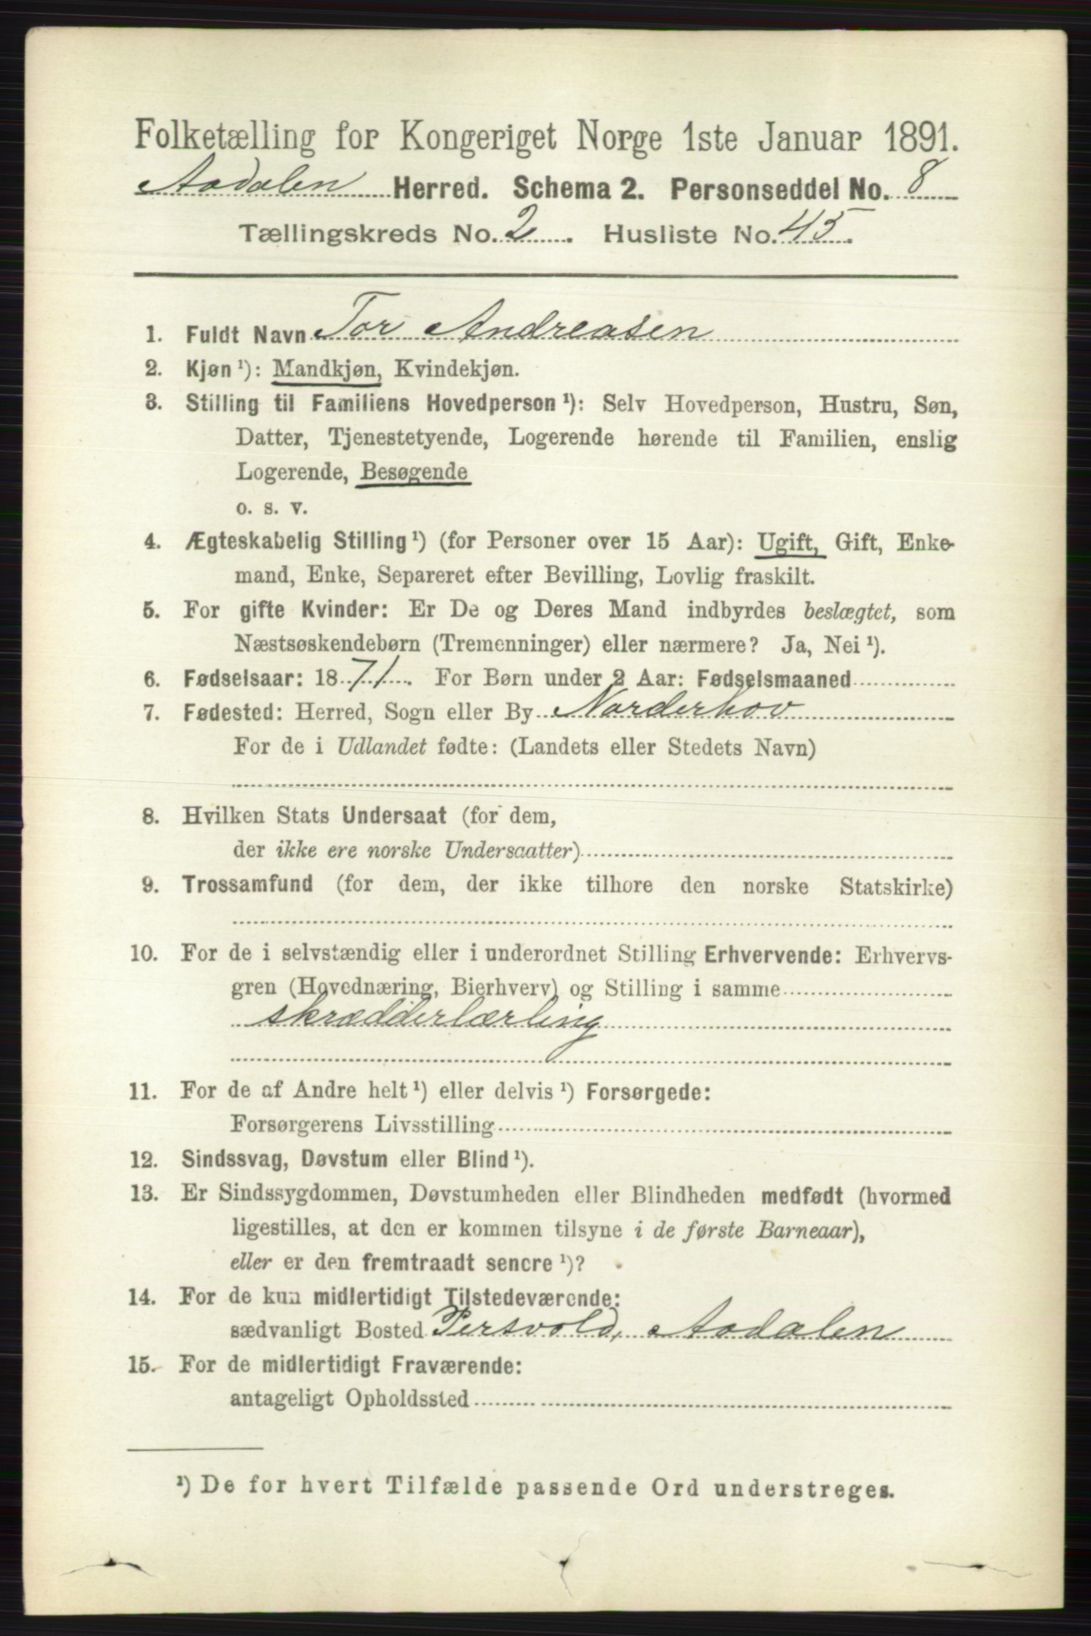 Folketælling for Kongeriget Norge 1ste Januar 1891.
Aadalen Herred. Schema 2. Personseddel No. 8
Tællingskreds No. 2. Husliste No. 45.
1. Fuldt Navn Tor Andreasen
2. Kjøn ¹): Mandkjøn, Kvindekjøn.
3. Stilling til Familiens Hovedperson ¹): Selv Hovedperson, Hustru, Søn,
Datter, Tjenestetyende, Logerende hørende til Familien, enslig
Logerende, Besøgende
o. s. v.
4. Ægteskabelig Stilling ¹) (for Personer over 15 Aar): Ugift, Gift, Enke-
mand, Enke, Separeret efter Bevilling, Lovlig fraskilt.
5. For gifte Kvinder: Er De og Deres Mand indbyrdes beslægtet, som
Næstsøskendebørn (Tremenninger) eller nærmere? Ja, Nei ¹).
6. Fødselsaar: 1871. For Børn under 2 Aar: Fødselsmaaned
7. Fødested: Herred, Sogn eller By Norderhov
For de i Udlandet fødte: (Landets eller Stedets Navn)
8. Hvilken Stats Undersaat (for dem,
der ikke ere norske Undersaatter)
9. Trossamfund (for dem, der ikke tilhøre den norske Statskirke)
10. For de i selvstændig eller i underordnet Stilling Erhvervende: Erhvervs-
gren (Hovednæring, Bierhverv) og Stilling i samme
skrædderlærling
11. For de af Andre helt ¹) eller delvis ¹) Forsørgede:
Forsørgerens Livsstilling
12. Sindssvag, Døvstum eller Blind ¹).
13. Er Sindssygdommen, Døvstumheden eller Blindheden medfødt (hvormed
ligestilles, at den er kommen tilsyne i de første Barneaar),
eller er den fremtraadt senere ¹)?
14. For de kun midlertidigt Tilstedeværende:
sædvanligt Bosted Persvold, Aadalen
15. For de midlertidigt Fraværende:
antageligt Opholdssted
¹) De for hvert Tilfælde passende Ord understreges.